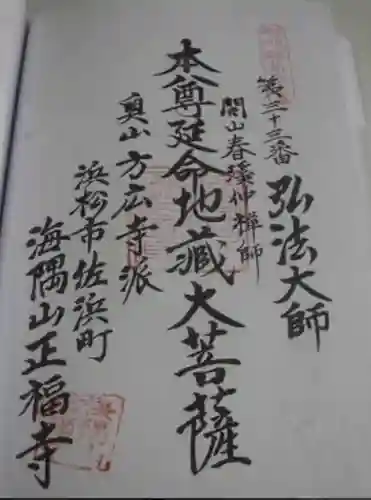 第三十三番
弘法大師
開山春溪仲禅師
本尊延命地蔵大菩薩
奥山方広寺派
浜松市佐浜町
海隅山正福寺